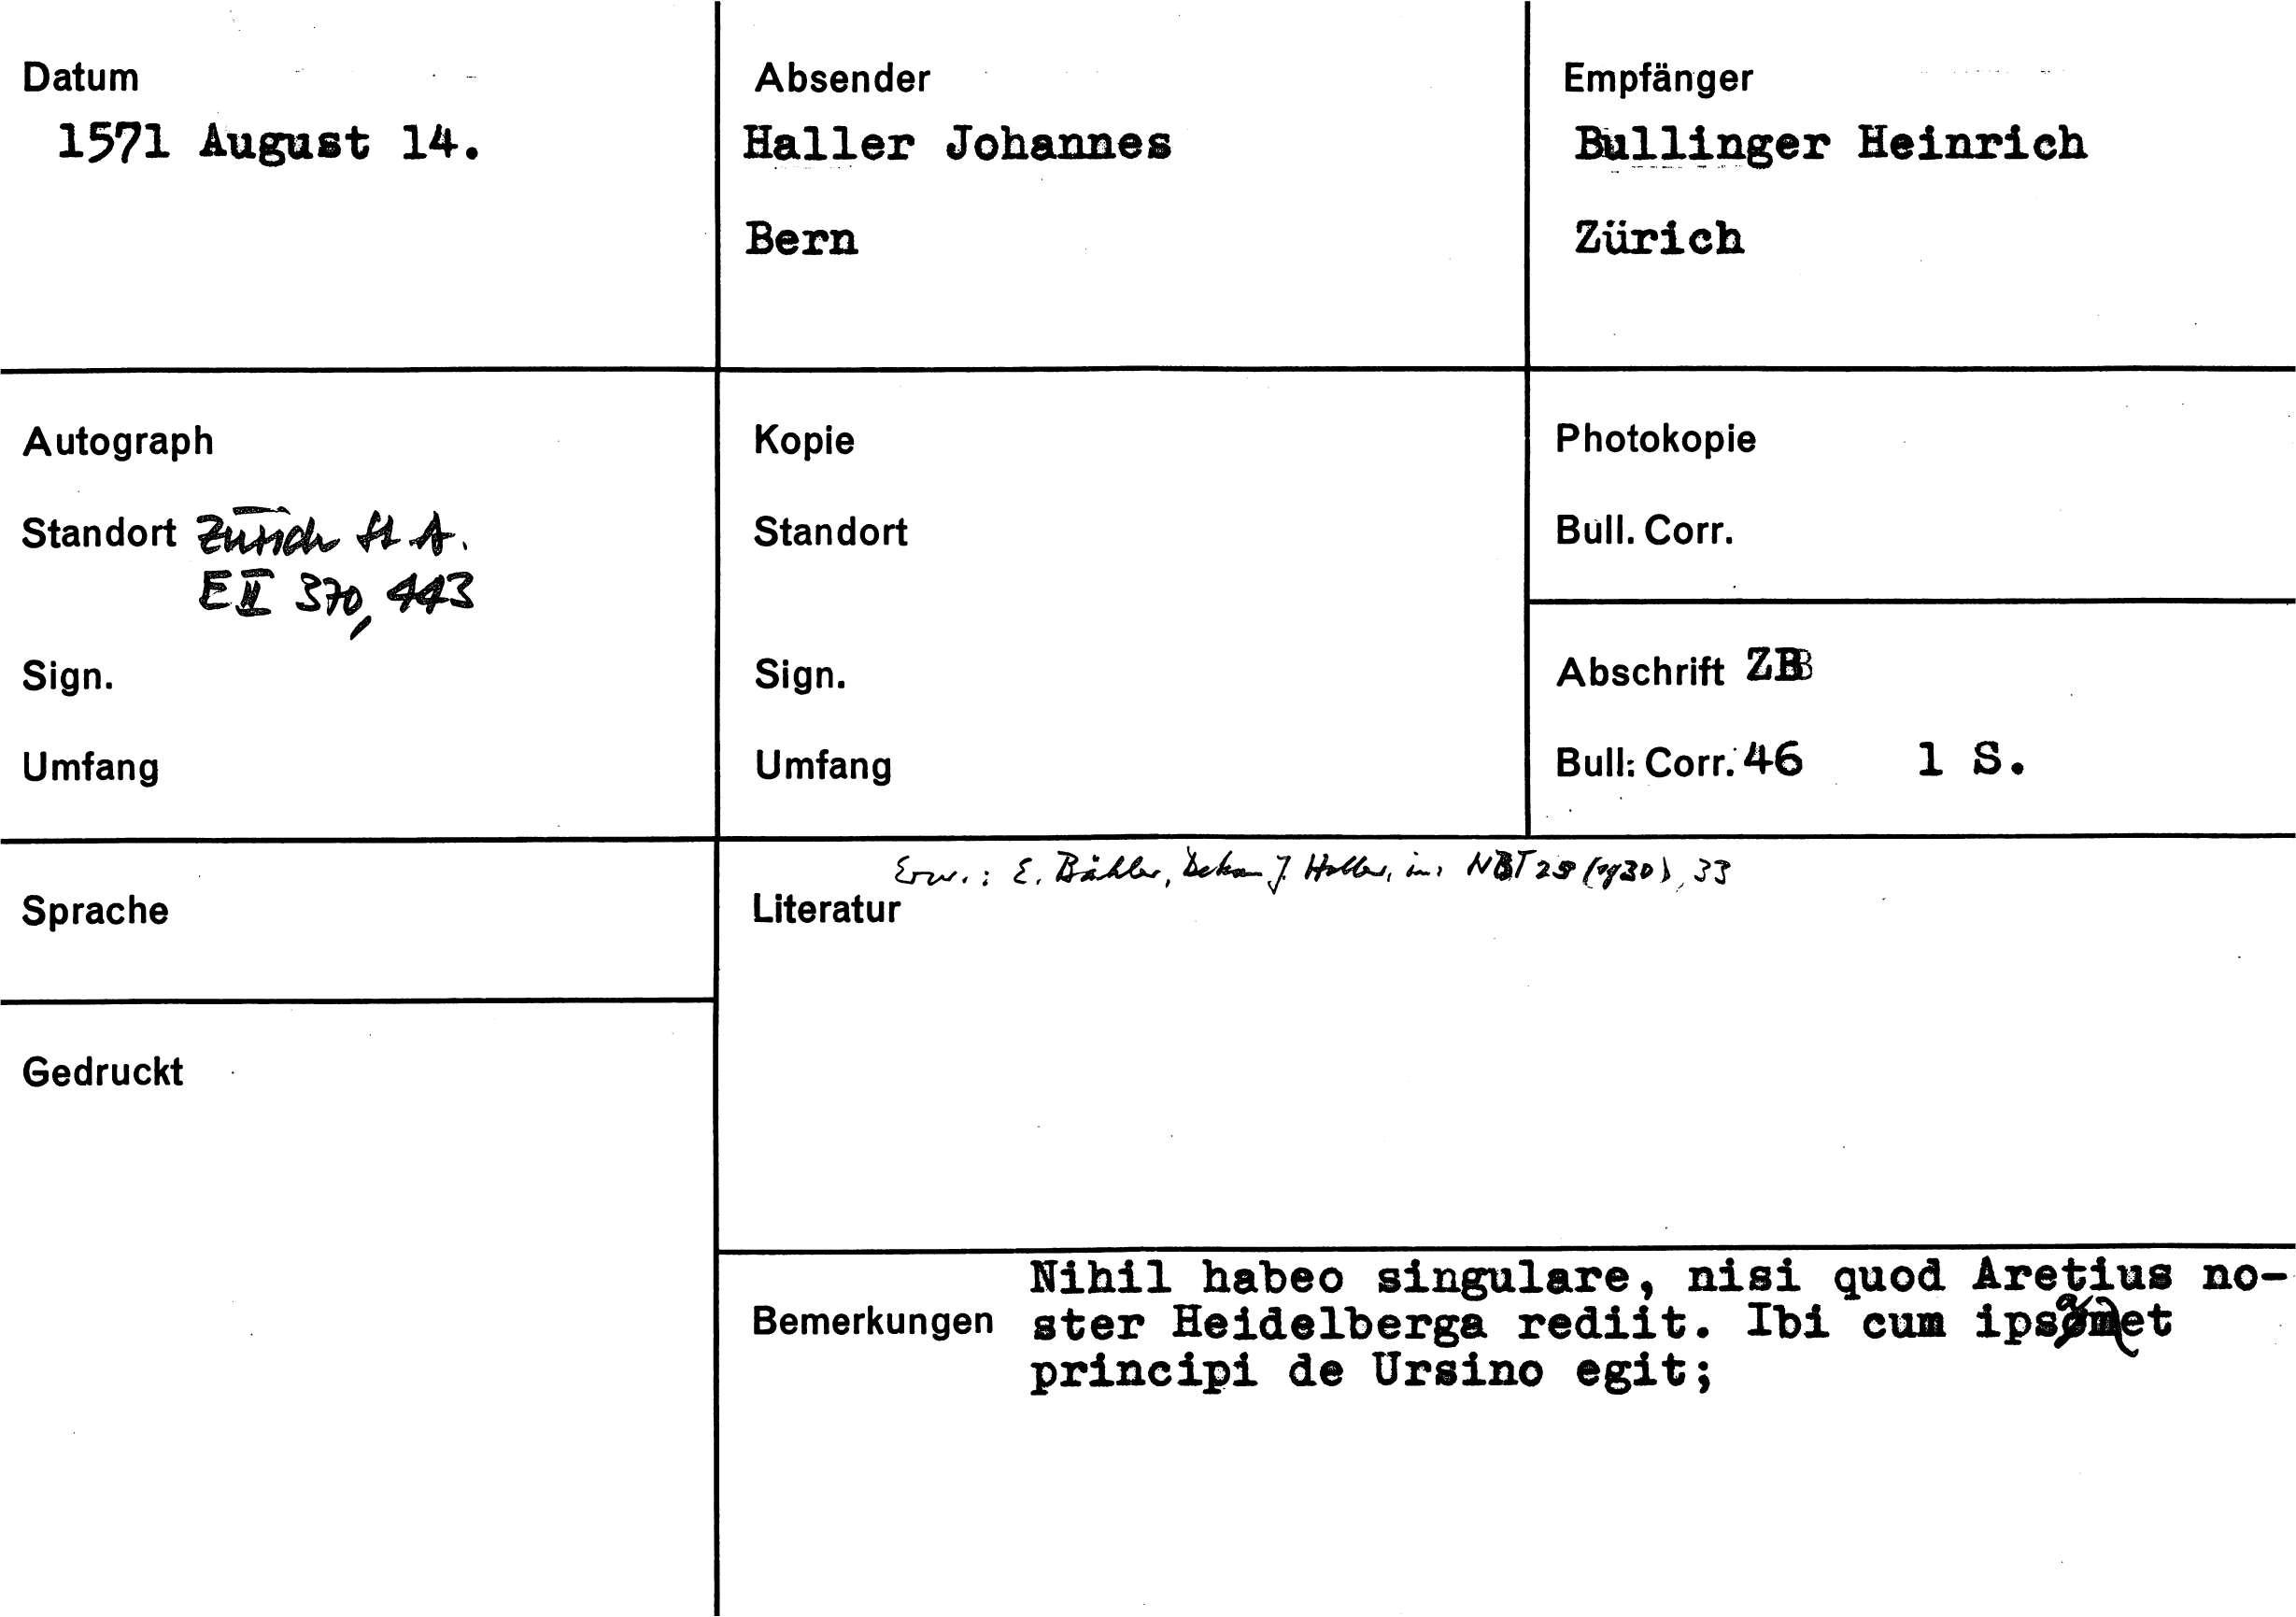 Datum
1571 August 14.
Absender
Haller Johannes
Bern
Empfänger
Bullinger Heinrich
Zürich
Autograph
Standort Zürich StA.
E II 370, 443
Sign.
Umfang
Kopie
Standort
Sign.
Umfang
Photokopie
Bull. Corr.
Abschrift ZB
Bull. Corr. 46 1 S.
Sprache
Gedruckt
Erw.: E. Bähler, Dekan J. Haller, in: NBT 28 (1930), 33
Literatur
Bemerkungen
Nihil habeo singulare, nisi quod Aretius no-
ster Heidelberga rediit. Ibi cum
principi de Ursino egit;